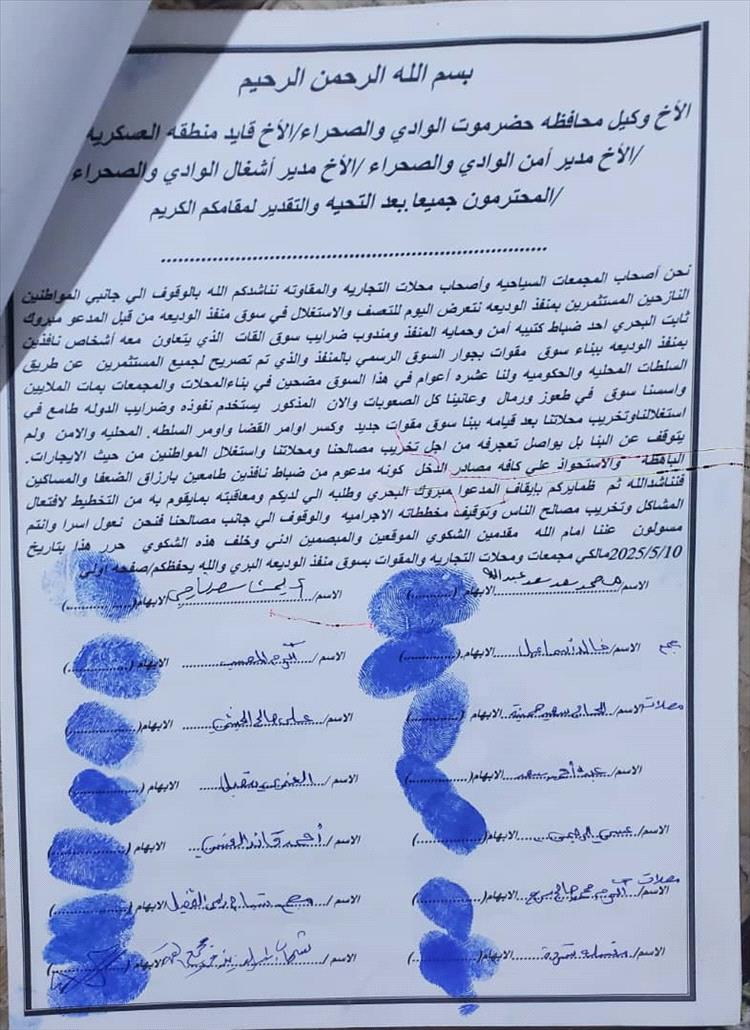 بسم الله الرحمن الرحيم
الأخ وكيل محافظه حضرموت الوادي والصحراء/الأخ قايد منطقه العسكريه
/الأخ مدير أمن الوادي والصحراء /الأخ مدير أشغال الوادي والصحراء
/المحترمون جميعا بعد التحيه والتقدير لمقامكم الكريم
نحن أصحاب المجمعات السياحيه وأصحاب محلات التجاريه والمقاوته نناشدكم الله بالوقوف الي جانبي المواطنين
النازحين المستثمرين بمنفذ الوديعه نتعرض اليوم للتعصف والاستغلال في سوق منفذ الوديعه من قبل المدعو مبروك
ثابت البحري احد ضباط كتيبه أمن وحمايه المنفذ ومندوب ضرايب سوق القات الذي يتعاون معه أشخاص نافذين
بمنفذ الوديعه ببناء سوق مقوات بجوار السوق الرسمي بالمنفذ والذي تم تصريح لجميع المستثمرين عن طريق
السلطات المحليه والحكوميه ولنا عشره أعوام في هذا السوق مضحين في بناءالمحلات والمجمعات بمات الملايين
واسسنا سوق في طعوز ورمال وعانينا كل الصعوبات والان المذكور يستخدم نفوذه وضرايب الدوله طامع في
استغلالناوتخريب محلاتنا بعد قيامه ببنا سوق مقوات جديد وكسر اوامر القضا واومر السلطه. المحليه والامن ولم
يتوقف عن البنا بل يواصل تعجرفه من اجل تخريب مصالحنا ومحلاتنا واستغلال المواطنين من حيث الايجارات.
الباهظه والاستحواذ علي كافه مصادر الدخل كونه مدعوم من ضباط نافذين طامعين بارزاق الضعفا والمساكين
فنناشدالله ثم ظمايركم بإيقاف المدعوا مبروك البحري وطلبه الي لديكم ومعاقبته بمايقوم به من التخطيط لافتعال
المشاكل وتخريب مصالح الناس وتوقيف مخططاته الاجراميه والوقوف الي جانب مصالحنا فنحن نعول اسرا وانتم
مسولون عننا امام الله مقدمين الشكوي الموقعين والمبصمين ادني وخلف هذه الشكوي حرر هذا بتاريخ
2025/5/10مالكي مجمعات ومحلات التجاريه والمقوات بسوق منفذ الوديعه البري والله يحفظكم/صفحه اولى
الاسم/محمد سعد سعد عبدالله الابهام (............) الاسم/ الابهام(............)
الاسم/خالد اسماعيل الابهام.(............) الاسم/ الابهام (............)
الاسم/ الابهام (............) الاسم/علي صالح الابهام (............)
الاسم/عبده احمد سعد الابهام(............) الاسم/ الابهام (............)
الاسم/عيسى الابهام(............) الاسم/أحمد قائد الابهام (............)
الاسم/ الابهام(............) الاسم/ الابهام (............)
الاسم/ الابهام (............) الاسم/ الابهام(............)